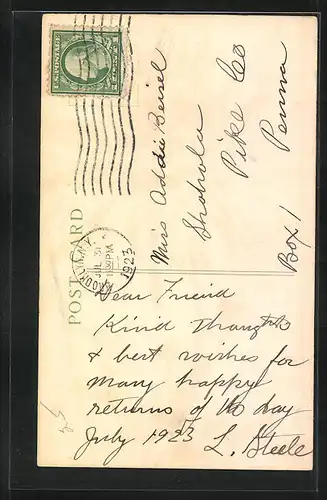 U.S. POSTAGE
POST CARD
BROOKLYN, N.Y.
JUL 31
PM
1923
Miss Addie Beisel
Shohola
Pike Co
Penna
Box 1
Dear Friend
Kind Thoughts
& best wishes for
Many happy
returns of the day
July 1923 L. Steele